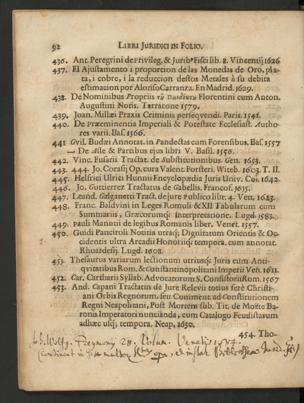 92 LIBRI JURIDICI IN FOLIO.
436. Ant. Peregrini de Privileg. & Jurib⁹ Fisci lib. 8. Vincentij 1626
437. El Ajustamento i proporcion de las Monedas de Oro, pla-
ta, i cobre, i la reduccion destos Metales à su debita
estimacion por Alonso Carranza. En Madrid. 1629.
438. De Nominibus Propriis τῦ Florentini cum Anton.
Augustini Notis. Tarracone 1579.
439. Joan. Millæi Praxis Criminis persequendi. Paris. 1541.
440. De præeminentia Imperiali & Potestate Ecclesiast. Autho-
res varii. Bas. 1566.
441 Gvil. Budæi Annotat. in Pandectas cum Forensibus. Bas 1557
— De Asse & Partibus ejus libri V. Basil. 1550.
442. Vinc. Fusarii Tractat. de Substitutionibus Gen. 1653.
443. 444. Jo. Corasij Op. cura Valent. Forsteri. Witeb. 1603. T. II.
445. Helfrici Ulrici Hunnii Encyclopædia Juris Univ. Col. 1642.
446. Jo. Gutierrez Tractatus de Gabellis. Francof. 1615.
447. Leand. Galganetti Tract. de jure Publico libr. 4. Ven. 1623.
448. Franc. Balduini in Leges Romuli & XII Tabularum cum
Summariis, Græcorumq; Interpretatione. Lugd. 1583.
449. Pauli Manutii de legibus Romanis liber. Venet. 1557.
450. Guidi Panciroli Notitia utraq; Dignitatum Orientis & Oc-
cidentis ultra Arcadii Honoriiq; tempora. cum annotat.
Rhuardesij. Lugd. 1608.
451. Thesaurus variarum lectionum utriusq; Juris cum Anti-
quitatibus Rom. & Constantinopolitani Imperii Ven. 1611.
452. Car. Cartharii Syllab. Advocatorum S. Consistorii Rom. 1567
453. And. Capani Tractatus de Jure Relevii totius ferè Christi-
ani Orbis Regnorum, seu Cuniment. ad Constitutionem
Regni Neapolitani, Post Mortem sub. Tit. de Morte Ba-
ronis Imperatori nuncianda, cum Catalogo Feudistarum
adhæc usq; tempora. Neap. 1630.
454. Tho-